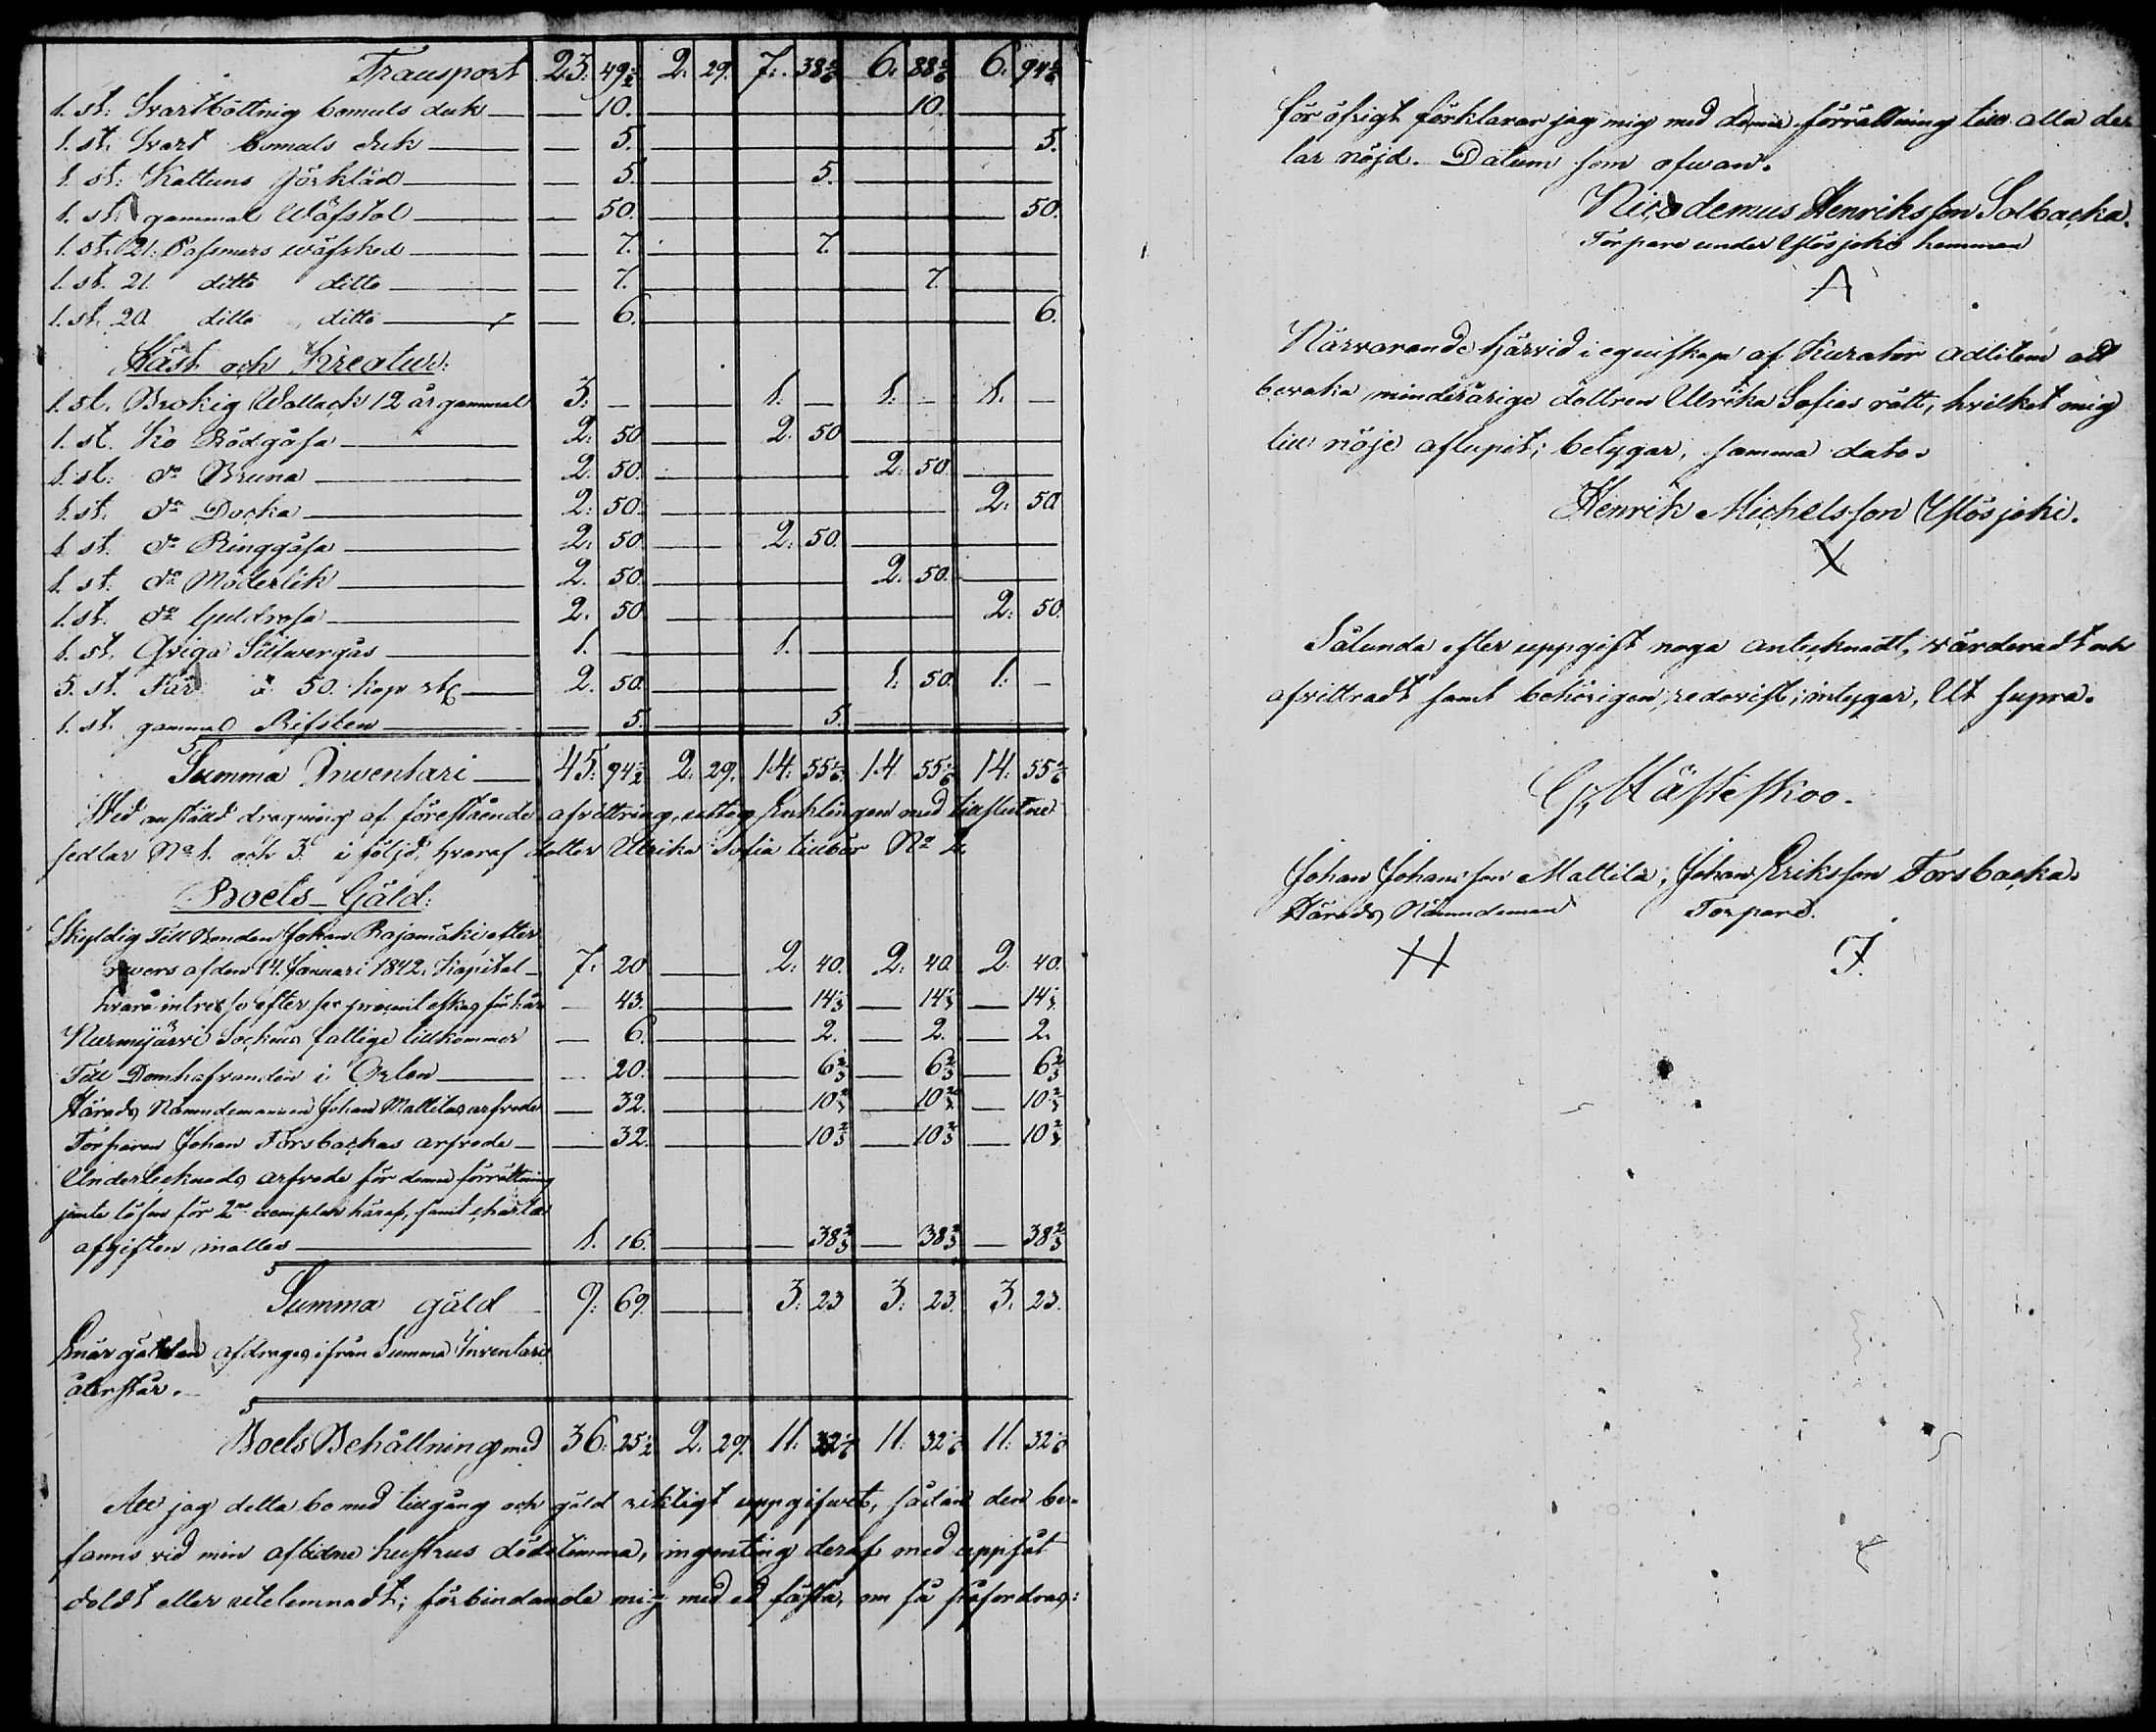 Transport 23: 49½ 2: 29. 7: 38 4/6 6: 88 4/6 6: 94 4/6
1. st: Svartböttnig bomuls duk — 10. — 10. —
1. st. Svart bomuls duk — 5. — 5.
1. st: Kattuns förkläd — 5. — 5. —
1. st: gammal Wäfstol — 50. — 50.
1. st. 21: Pasmers wäfsked — 7. — 7. —
1. st. 21 ditto ditto — 7. — 7. —
1. st. 20 ditto ditto — 6. — 6.
Häst och Kreatur:
1. st. Brokig Wallack 12 år gammal 3: — 1. — 1. — 1. —
1. st. Ko Rödgåsa — 2: 50 — 2: 50 —
1. st: do Bruna — 2. 50. — 2: 50. —
1. st. do Docka — 2: 50. — 2: 50
1. st. do Ringgåsa — 2: 50. — 2: 50. —
1. st: do Möderlik — 2. 50. — 2. 50. —
1. st. do Guldrosa — 2. 50 — 2: 50.
1. st. Qviga Silfwergås — 1. — 1. —
5. st. Får a 50. kop. st — 2. 50. — 1. 50. 1: —
1. st. gammal Rifsten — 5. — 5. —
Summa Inventari — 45: 94½ 2: 29. 14: 55 1/6 14. 55 1/6 14: 55 1/6
Wid anställd dragning af förestående afvittring, uttog Enklingen med tillslutne
sedlar No 1. och 3. i följd, hvaraf dotter Ulrika Sofia tillbör No 2.
Boets-Gäld:
Skyldig Till Bonden Johan Rajamäki efter
revers af den 14. Januari 1842. Kapital — 7: 20 — 2: 40. 2: 40. 2. 40.
hvarå intresse efter sex procent för 1. år — 43. — 14⅓ — 14⅓ — 14⅓
Nurmijärvi Sockens fattige tillkommer — 6. — 2. — 2. — 2.
Till Domhafvanden i Orten — 20. — 6⅔ — 6⅔ — 6⅔
Härads Nämndemannen Johan Mattilas arfvode — 32. — 10⅔ — 10⅔ — 10⅔
Torparen Johan Forsbackas arfvode — 32. — 10⅔ — 10⅔ — 10⅔
Undertecknads arfvode för denna förrättning
jemte lösen för 2ne exemplar häraf, samt charta
afgiften inalles — 1. 16. — 38⅔ — 38⅔ — 38⅔
Summa gäld 9: 69. — 3: 23 3: 23. 3. 23.
Enär gälden afdrages ifrån Summa Inventari
återstår.
Boets Behållning med 36: 25½ 2. 29. 11: 32 1/6 11: 32 1/6 11: 32 1/6
Att jag detta bo med tillgång och gäld riktigt uppgifvet, sådan den be-
fanns vid min aflidne hustrus dödstimma, ingenting deraf med uppsåt
doldt eller utelemnadt; förbindande mig med ed fästa, om så påfordras:
för öfrigt förklarar jag mig med denna förrättning till alla de-
lar nöjd. Datum som ofwan.
Nicodemus Henriksson Solbacka.
Torpare under Ylösjoki hemman
A
Närvarande härvid i egenskap af Kurator adlitem att
bevaka minderårige dottren Ulrika Sofias rätt, hvilket mig
till nöje aflupit; betygar, samma dato.
Henrik Michelsson Ylösjoki.
X
Sålunda efter uppgift noga antecknadt, värderadt och
afvittradt samt behörigen redovist; intygar, Ut supra.
Johan Johansson Mattila, Johan Eriksson Forsbacka.
Härads Nämndeman Torpare.
H F.